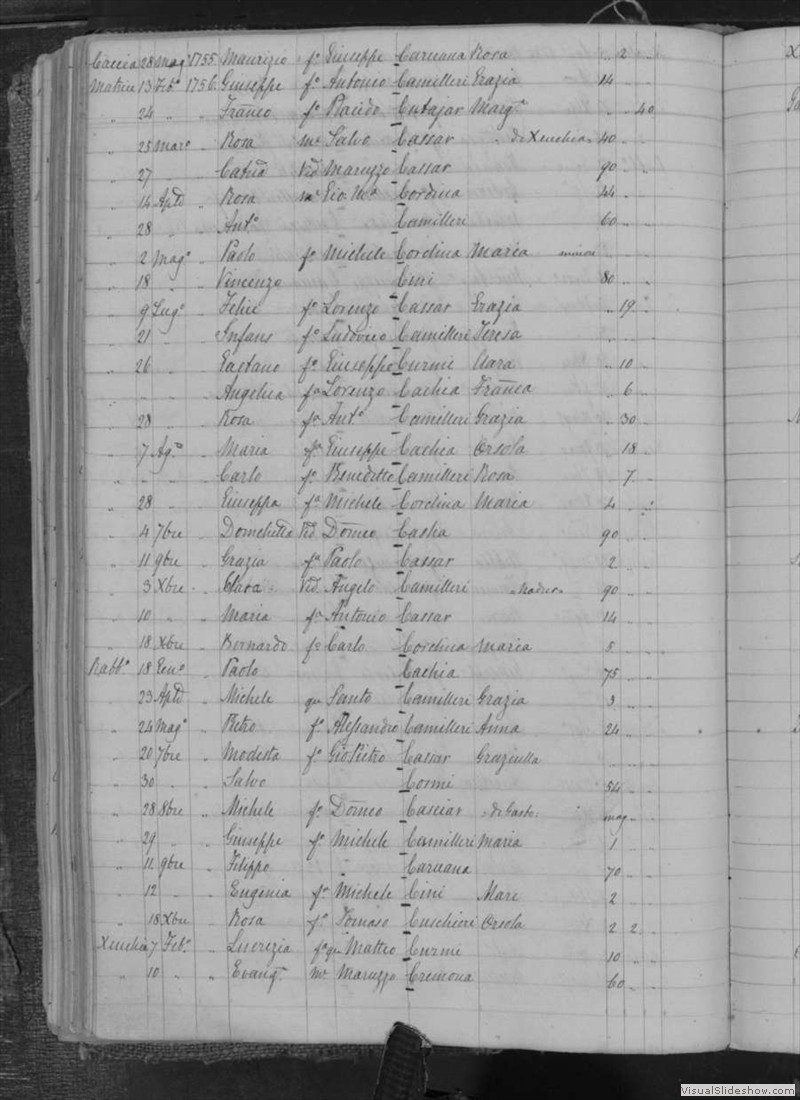 Caccia 28 Mag° 1755 Maurizio f° Giuseppe Caruana Rosa „ 2 „
Matrice 13 Feb° 1756 Giuseppe f° Antonio Camilleri Grazia 14 „ „
„ 24 „ „ Franco f° Placido Cutajar Marg^a „ „ 40
„ 25 Marº „ Rosa m^e Salvo Cassar „ di Xeuchia 40 „ „
„ 27 „ „ Cat^na Vid Maruzzo Cassar 90 „ „
„ 14 Aple „ Rosa m^e Gio M^a Cordina 44 „ „
„ 28 „ „ Ant° Camilleri 60 „ „
„ 2 Mag° „ Paolo f° Michele Cordina Maria minore „ „
„ 18 „ „ Vincenzo Cini 80 „ „
„ 9 Lug° „ Felice f° Lorenzo Cassar Grazia „ 19 „
„ 21 „ „ Infans f° Ludovico Camilleri Teresa „ „ „
„ 26 „ „ Gaetano f° Giuseppe Curmi Clara „ 10 „
„ „ „ „ Angelica f^a Lorenzo Cachia Franca „ 6 „
„ 28 „ „ Rosa f^a Ant° Camilleri Grazia „ 30
„ 7 Ag° „ Maria f^a Giuseppe Cachia Orsola 18 „
„ „ „ „ Carlo f° Benedetto Camilleri Rosa „ 7 „
„ 28 „ „ Giuseppa f^a Michele Cordina Maria 4 „ „
„ 4 7bre „ Vid Domco Casha 90 „ „
„ 11 9bre „ Grazia f^a Paolo Cassar 2 „ „
„ 3 Xbre „ Clara Vid Angelo Camilleri 90 „ „
„ 10 „ „ Maria f^a Antonio Cassar 14 „ „
„ 18 Xbre „ Bernardo f° Carlo Cordina Maria 5 „ „
Rabb° 18 Gen° „ Paolo Cachia 75 „ „
„ 23 Aple „ Michele qm Santo Camilleri Grazia 3 „ „
„ 24 Mag° „ Pietro f° Alessandro Camilleri Anna 24 „ „
„ 20 7bre „ Modesta f^a GioPietro Cassar Graziulla „ „ „
„ 30 „ „ Salvo Cormi 54 „ „
„ 28 8bre „ Michele f° Domco Casciar mag „ „
„ 29 „ „ Giuseppe f° Michele Camilleri Maria 1 „ „
„ 11 9bre „ Filippo „ Caruana 70 „ „
„ 12 „ „ Eugenia f^a Michele Cini Mare 2 „ „
„ 18 Xbre „ Rosa f^a Tomaso Cuschieri Orsola 2 2 „
Xeuchia 7 Feb° „ Lucrezia f^a qm Matteo Curmi 10 „ „
„ 10 „ „ Evang^a m^e Maruzzo Cremona 60 „ „
VisualSlideshow.com